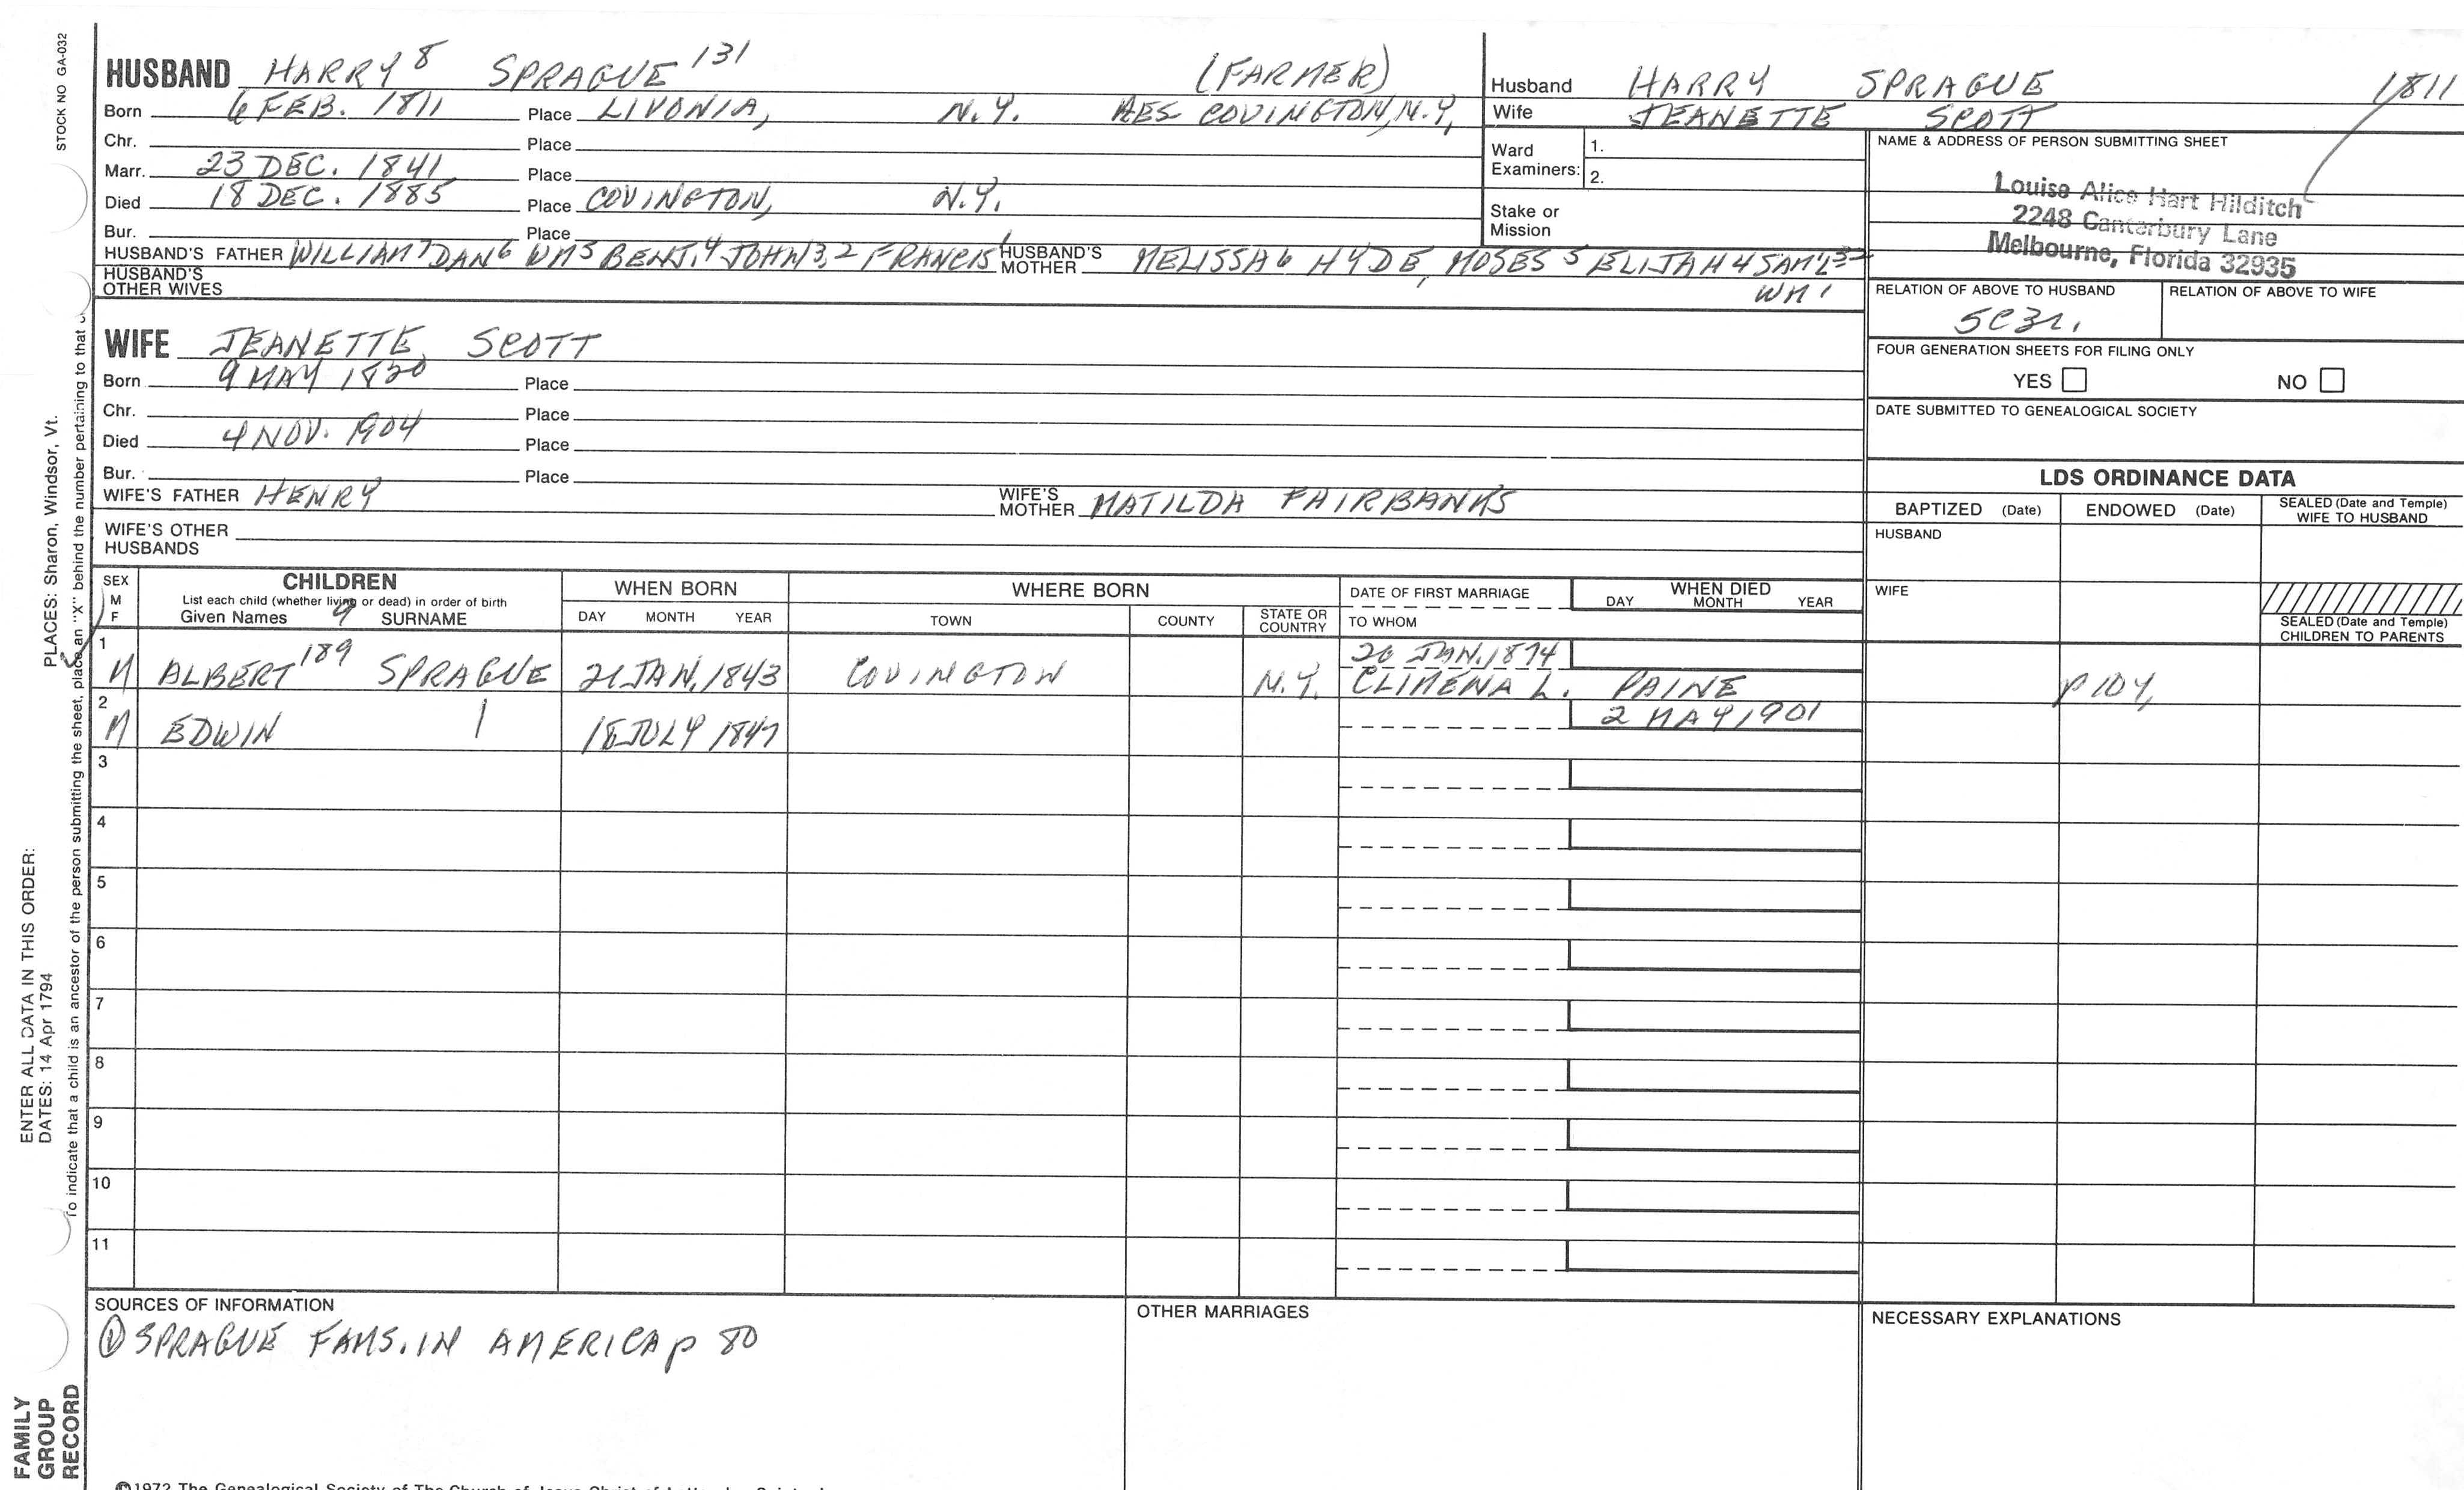 STOCK NO GA-032
HUSBAND HARRY 8 SPRAGUE 131 (FARMER)
Born 6 FEB. 1811 Place LIVONIA, N.Y. RES COVINGTON, N.Y.
Chr. Place
Marr. 23 DEC. 1841 Place
Died 18 DEC. 1885 Place COVINGTON, N.Y.
Bur. Place
HUSBAND'S FATHER WILLIAM 7 DAN 6 WM 5 BENJ. 4 JOHN 3, 2 FRANCIS 1 HUSBAND'S MOTHER MELISSA 6 HYDE, MOSES 5 ELIJAH 4 SAML 32
WM 1
HUSBAND'S OTHER WIVES
Husband HARRY SPRAGUE 1811
Wife JEANETTE SCOTT
Ward Examiners: 1.
2.
Stake or Mission
NAME & ADDRESS OF PERSON SUBMITTING SHEET
Louise Alice Hart Hilditch
2248 Canterbury Lane
Melbourne, Florida 32935
RELATION OF ABOVE TO HUSBAND RELATION OF ABOVE TO WIFE
5C3r.
FOUR GENERATION SHEETS FOR FILING ONLY
YES NO
DATE SUBMITTED TO GENEALOGICAL SOCIETY
WIFE JEANETTE SCOTT
Born 9 MAY 1820 Place
Chr. Place
Died 4 NOV. 1904 Place
Bur. Place
WIFE'S FATHER HENRY WIFE'S MOTHER MATILDA FAIRBANKS
WIFE'S OTHER HUSBANDS
LDS ORDINANCE DATA
BAPTIZED (Date) ENDOWED (Date) SEALED (Date and Temple) WIFE TO HUSBAND
HUSBAND
WIFE
SEALED (Date and Temple) CHILDREN TO PARENTS
SEX M F
CHILDREN
List each child (whether living or dead) in order of birth
Given Names 9 SURNAME
WHEN BORN
DAY MONTH YEAR
WHERE BORN
TOWN COUNTY STATE OR COUNTRY
DATE OF FIRST MARRIAGE
TO WHOM
WHEN DIED
DAY MONTH YEAR
1 M ALBERT 189 SPRAGUE 21 JAN. 1843 COVINGTON N.Y. 20 JAN. 1874
CLIMENA L. PAINE p 104
2 M EDWIN 18 JULY 1847 2 MAY 1901
3
4
5
6
7
8
9
10
11
SOURCES OF INFORMATION
① SPRAGUE FAMS. IN AMERICA p 80
OTHER MARRIAGES
NECESSARY EXPLANATIONS
PLACES: Sharon, Windsor, Vt.
ENTER ALL DATA IN THIS ORDER:
DATES: 14 Apr 1794
To indicate that a child is an ancestor of the person submitting the sheet, place an "X" behind the number pertaining to that
FAMILY GROUP RECORD
©1972 The Genealogical Society of The Church of Jesus Christ of